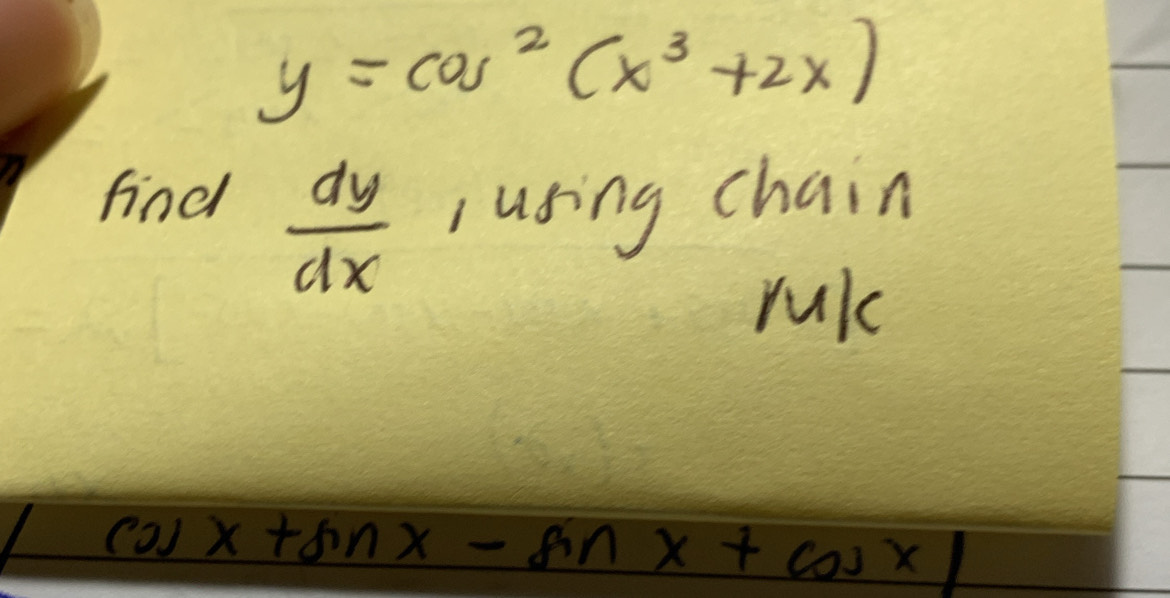 y = cos² (x³ + 2x)
find dy/dx , using chain
rule
cos x + sin x - sin x + cos x